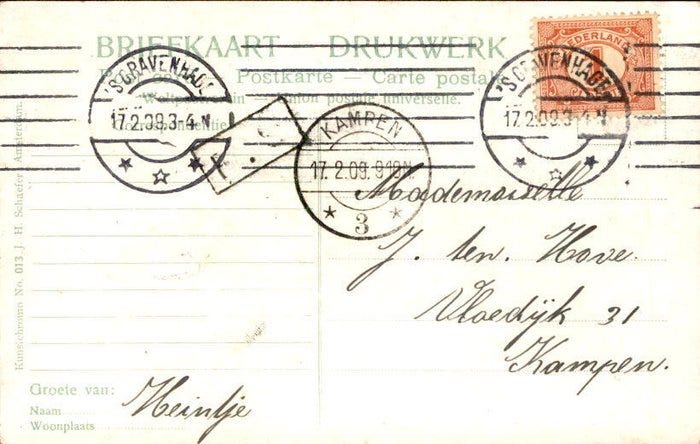 BRIEFKAART — DRUKWERK
Postkarte — Carte postale
Union postale universelle.
'S GRAVENHAGE
17.2.09.3-4 N
KAMPEN
17.2.09.9 10N
3
'S GRAVENHAGE
17.2.09.3-4 N
NEDERLAND
1
Mademoiselle
J. ten Hove.
Vloedijk 31
Kampen.
Groete van:
Naam
Woonplaats
Heintje
Kunstchromo No. 013 J. H. Schaefer, Amsterdam.